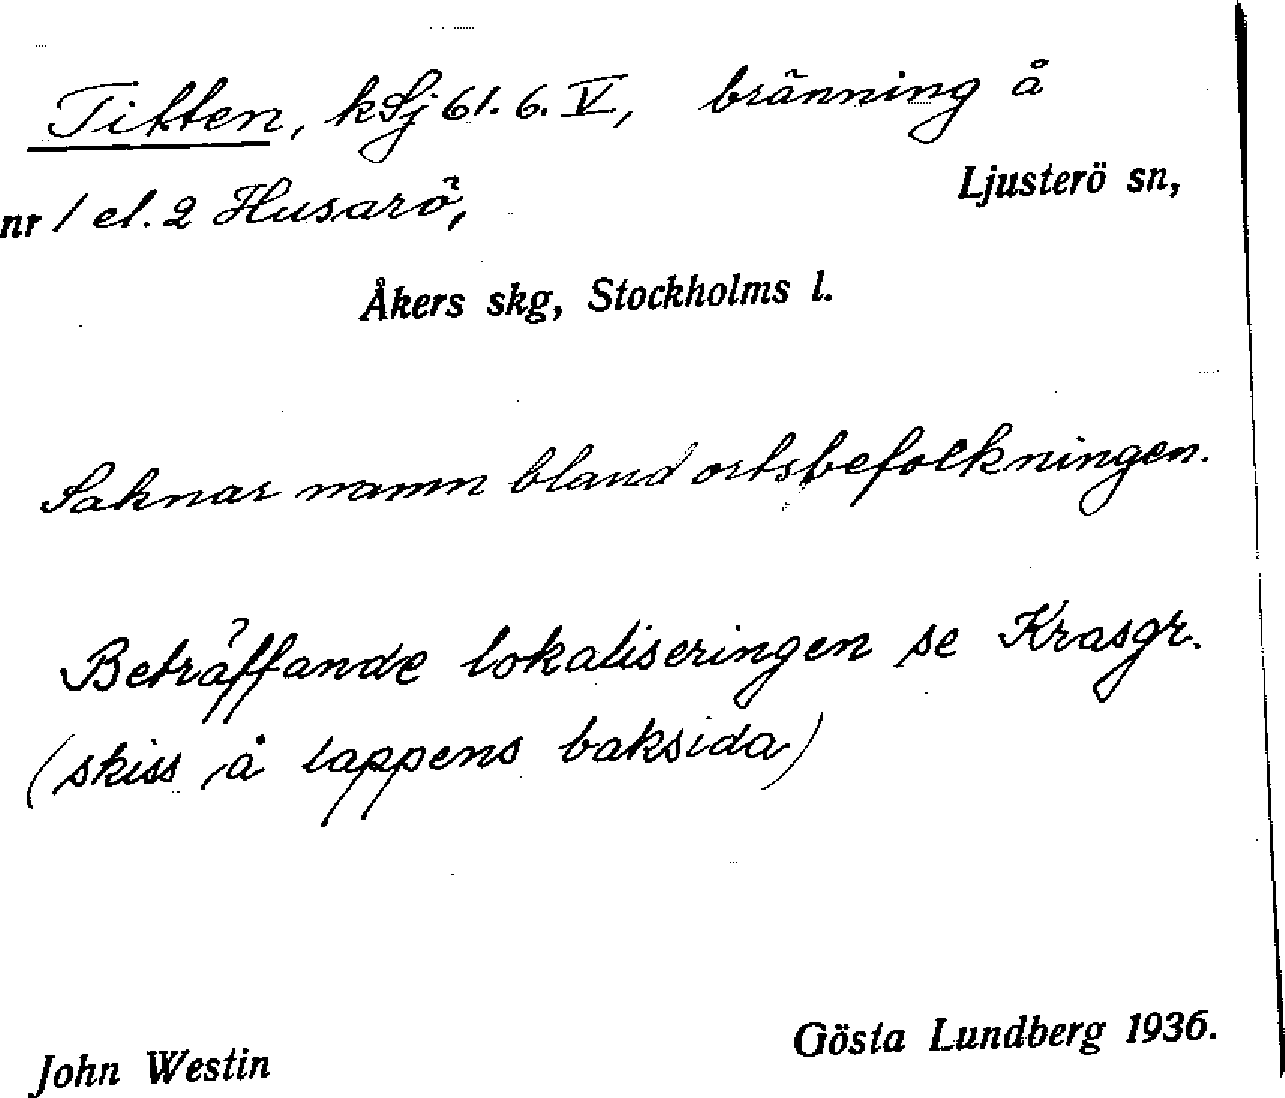 Titten, kSj 61. 6. V, bränning å
nr 1 el. 2 Husarö, Ljusterö sn,
Åkers skg, Stockholms l.
Saknar namn bland ortsbefolkningen.
Beträffande lokaliseringen se Krasgr.
(skiss å lappens baksida)
John Westin Gösta Lundberg 1936.